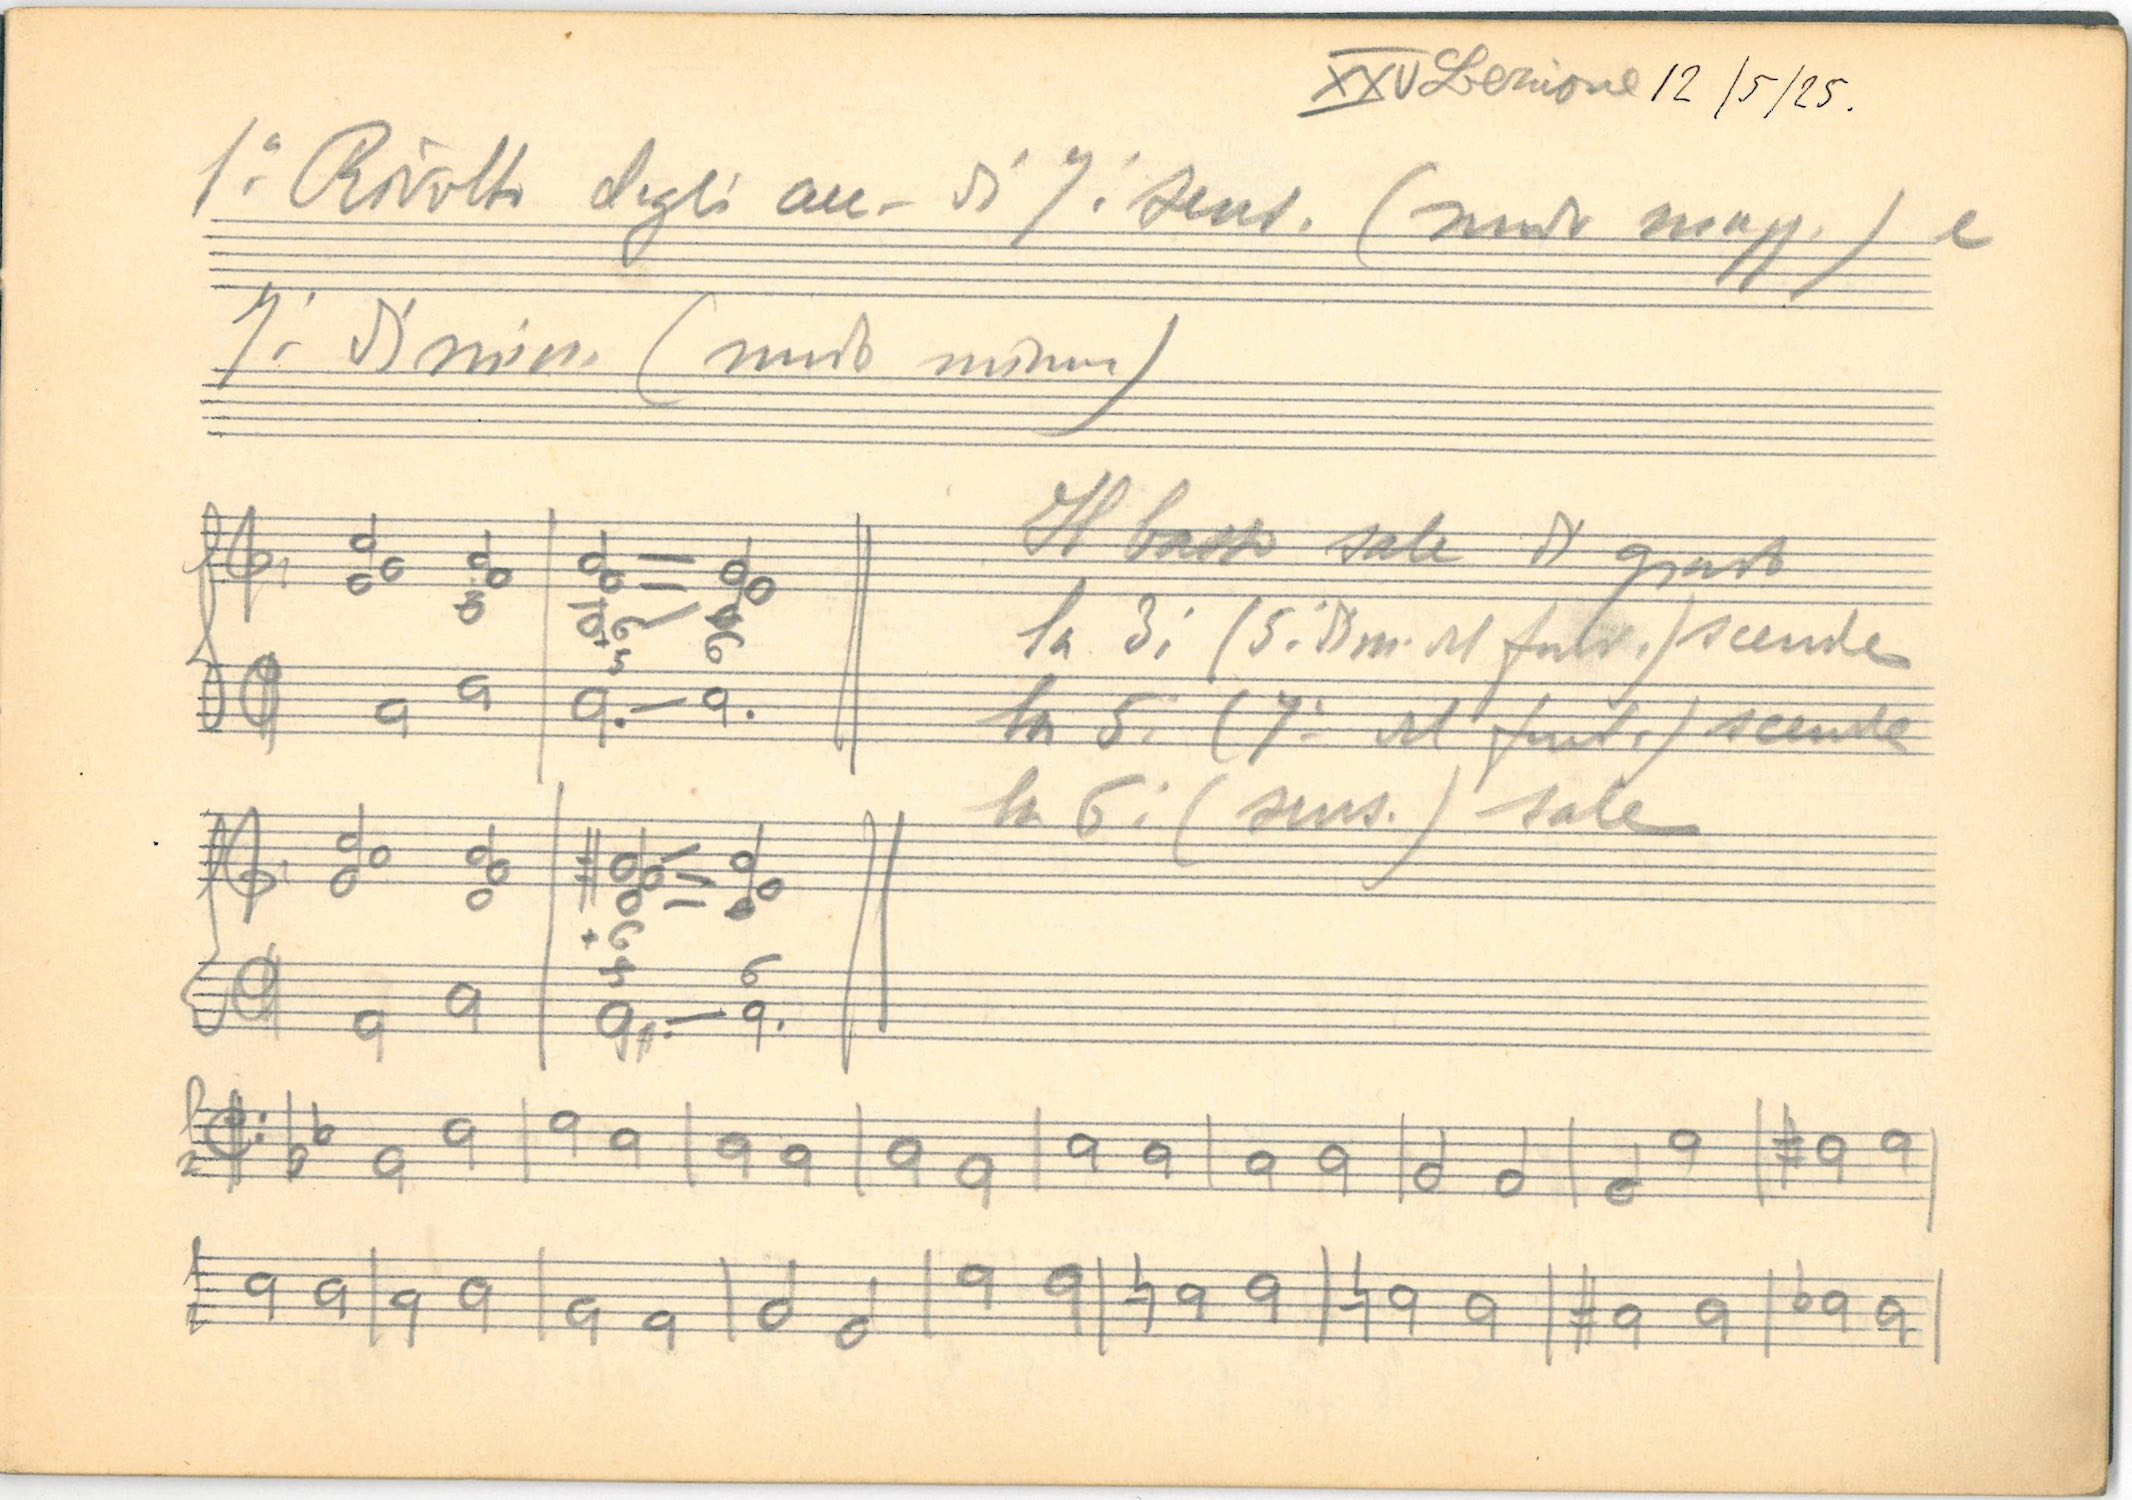 XXV Lezione 12/5/25.
1º Rivolto degli acc. di 7ª sens. (modo magg.) e
7ª dimin. (modo minore)
Il basso sale di grado
la 3ª (5ª dim. del fond.) scende
la 5ª (7ª del fond.) scende
la 6ª (sens.) sale